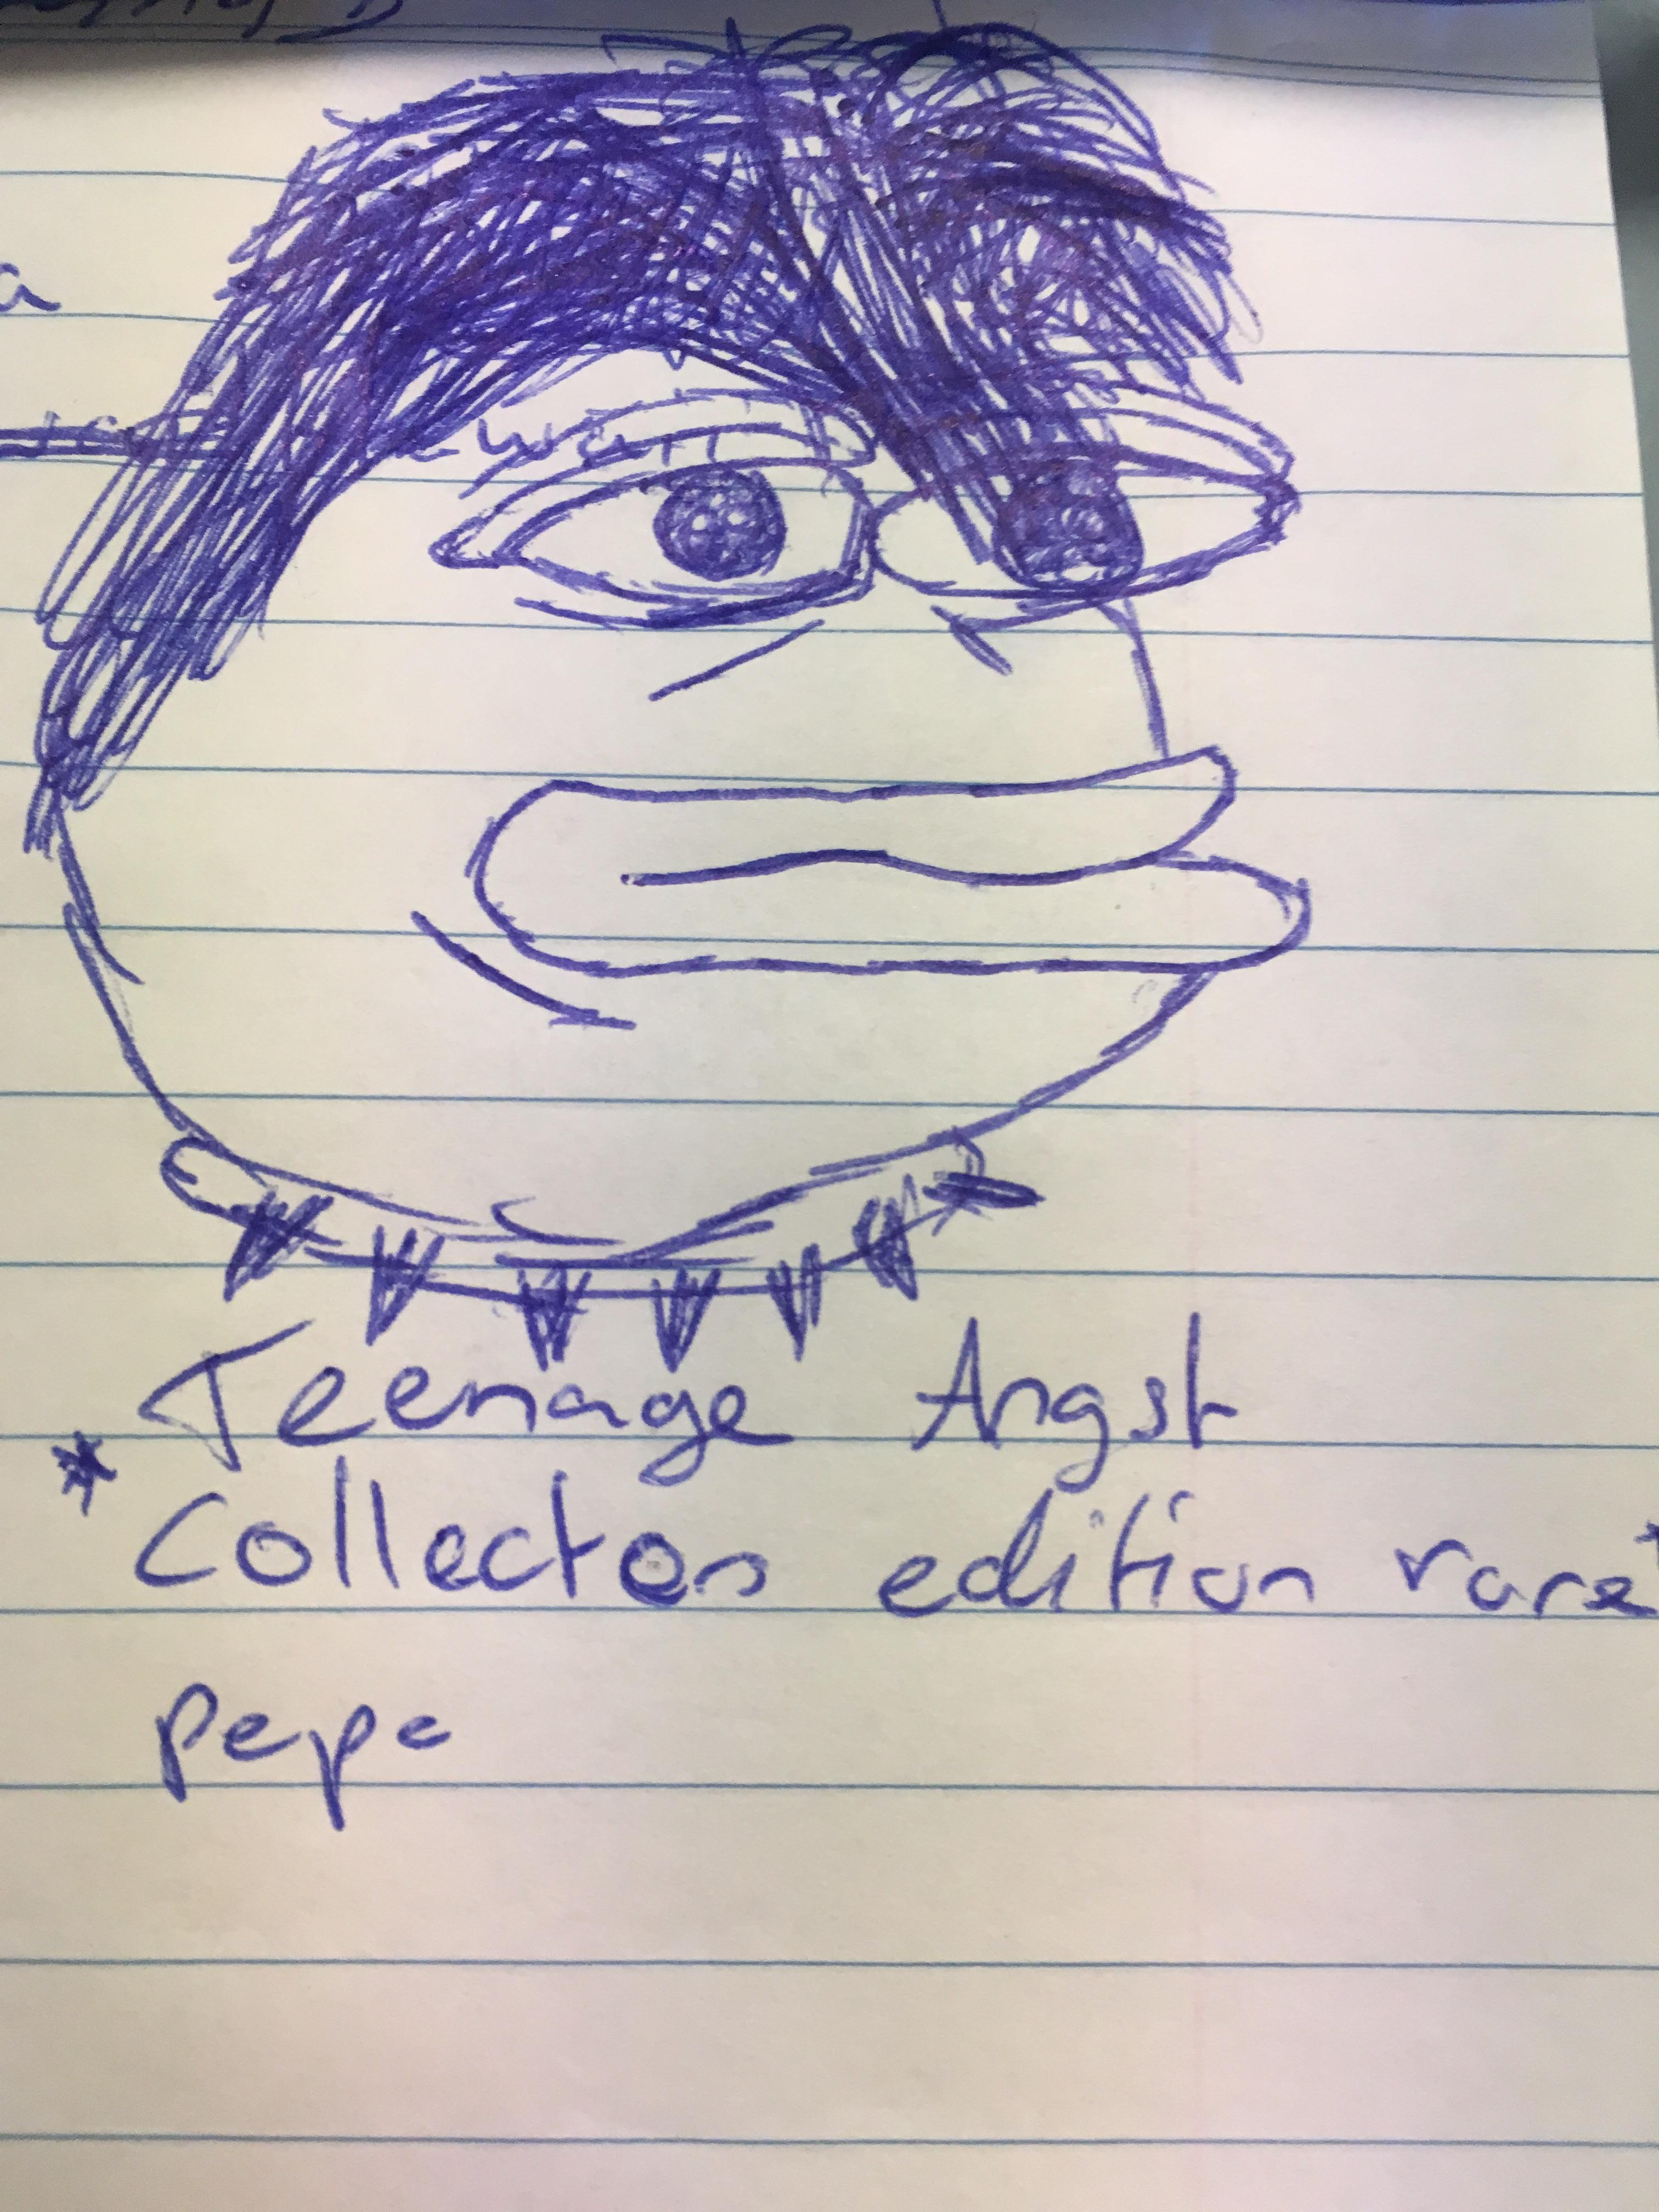 a
Teenage Angst
* Collectors edition rare*
pepe